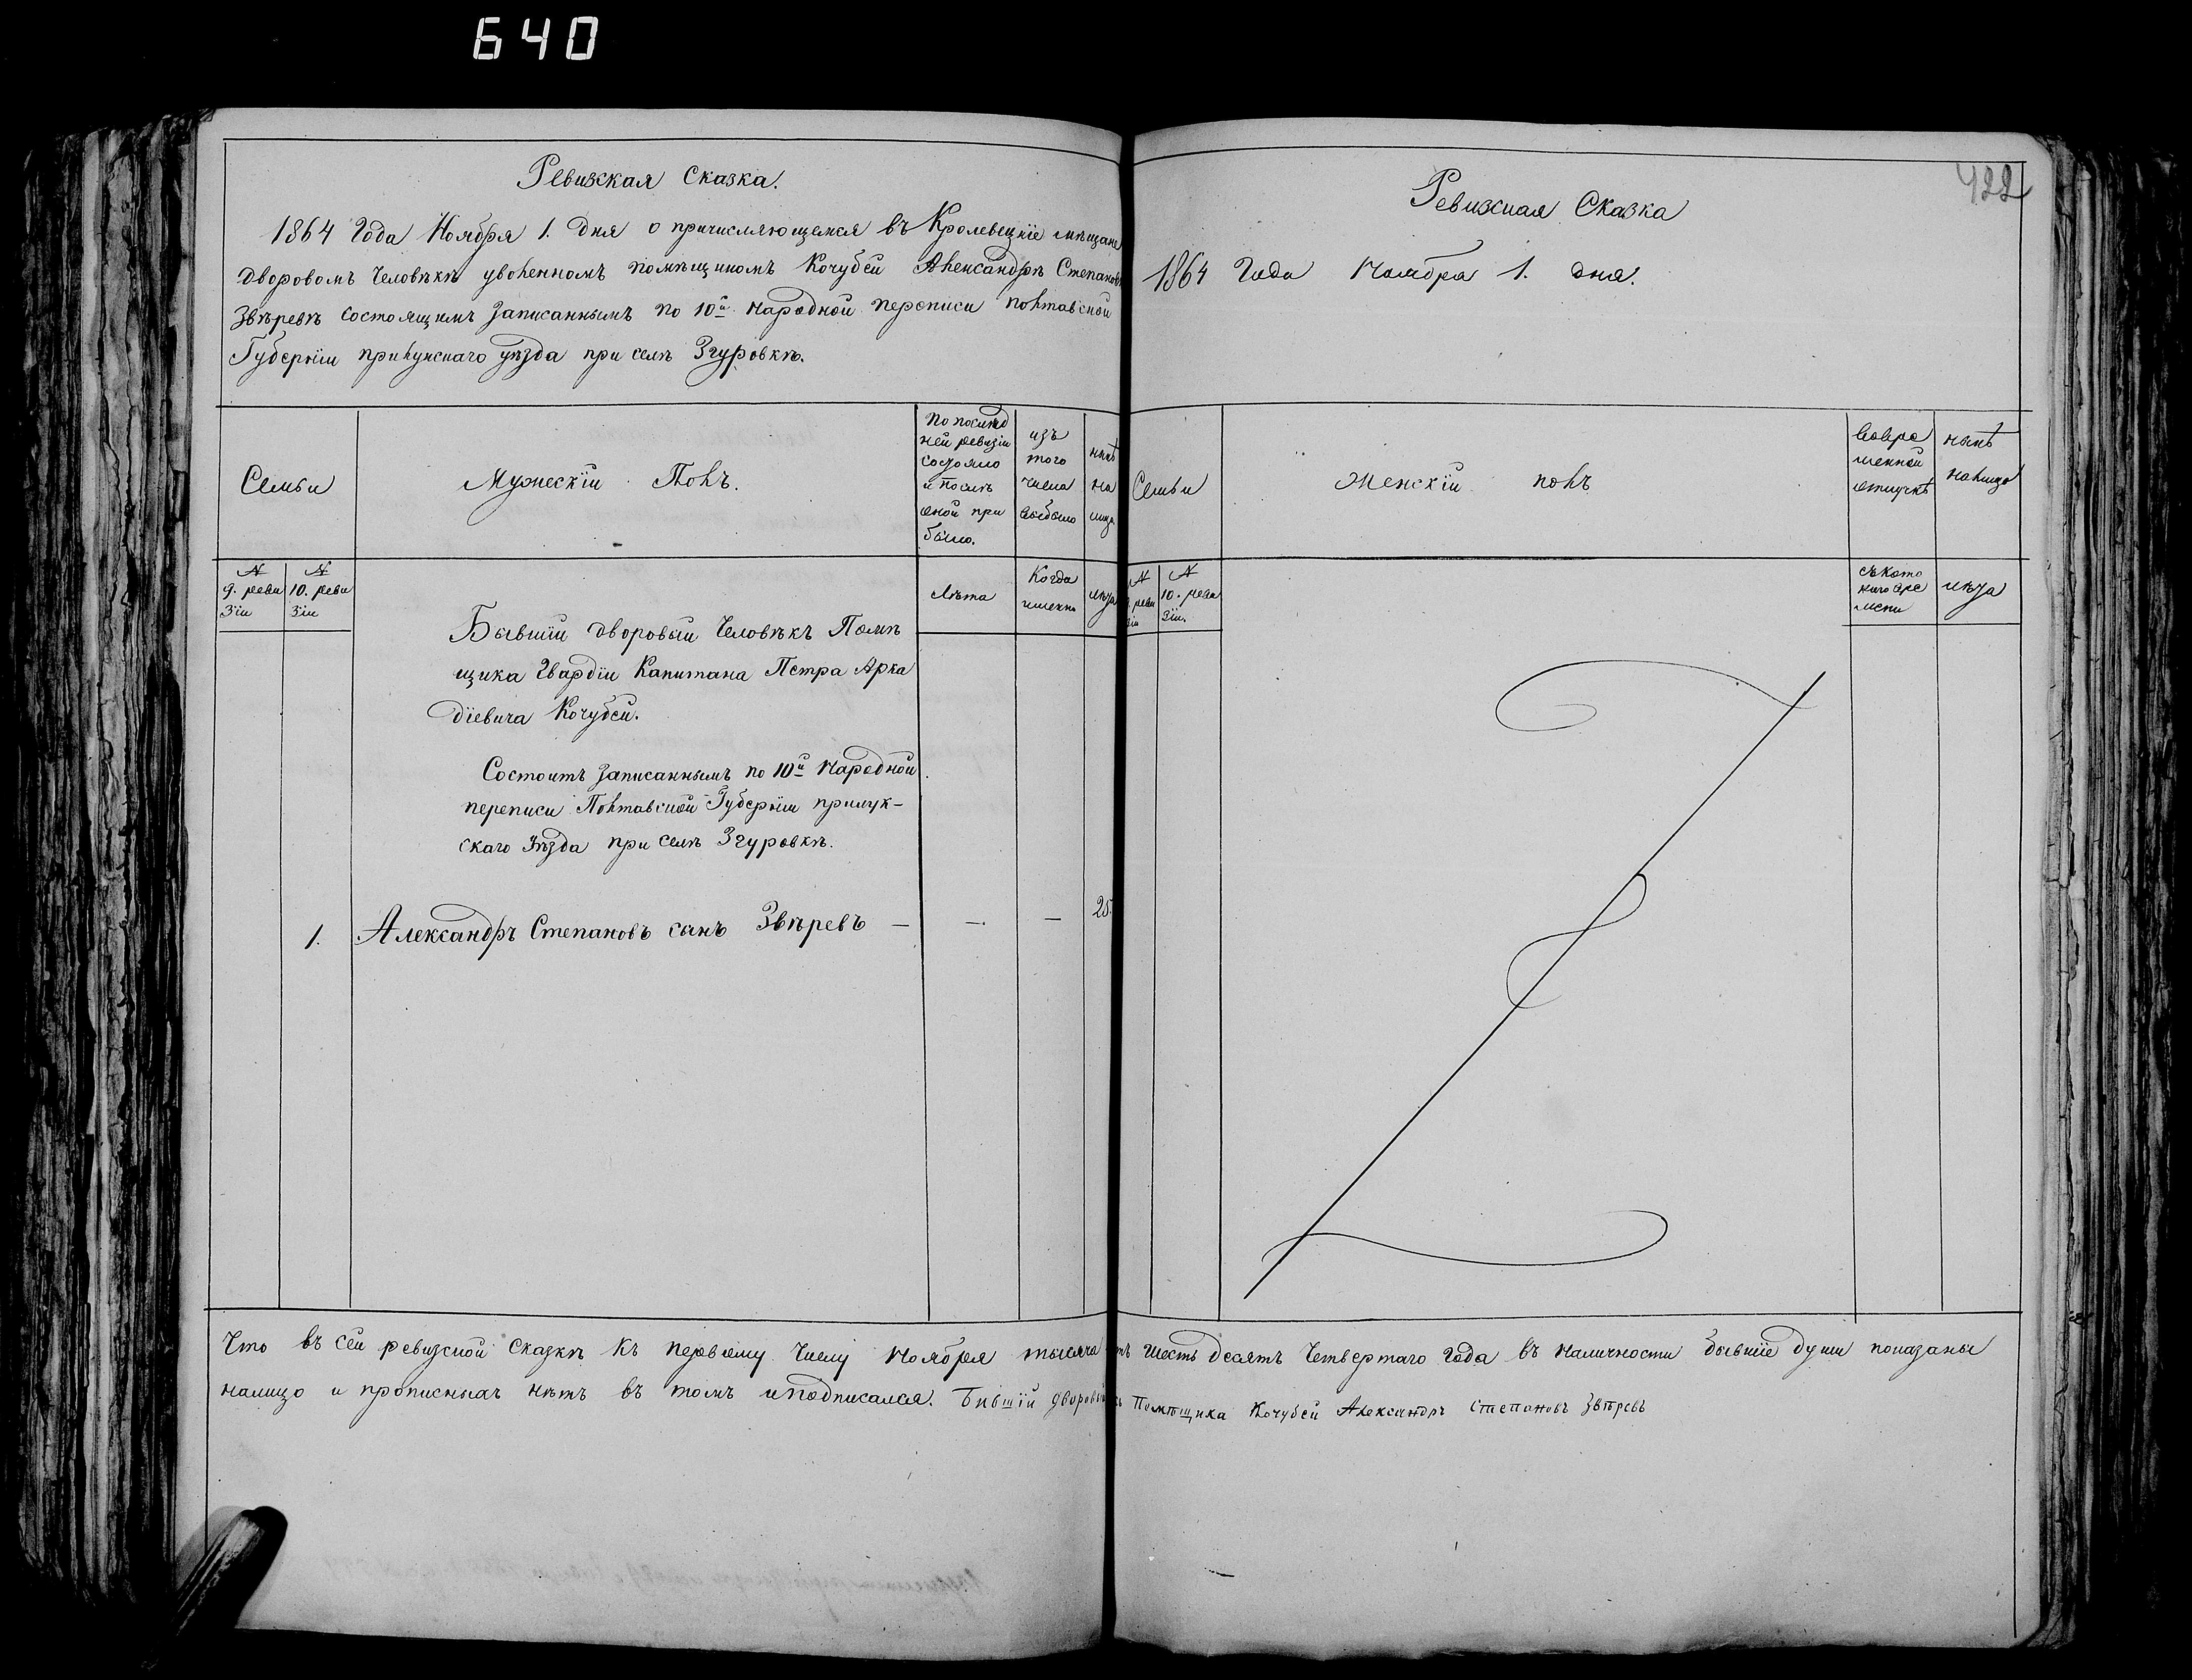 640
Ревизская Сказка.
1864 Года Ноября 1. Дня о причисляющемся въ Кролевецкіе мѣщане
Дворовомъ Человѣкѣ уволенномъ помѣщикомъ Кочубей Александрѣ Степанов
Звѣревѣ состоящимъ записаннымъ по 10й Народной переписи Полтавской
Губерніи прилукскаго уѣзда при селѣ Згуровкѣ.
Семьи
Мужескій Полъ.
По послѣд
ней ревизіи
состояло
и послѣ
оной при
было.
изъ
того
числа
выбыло
нынѣ
на
лицо
№
9. реви
зіи
№
10. реви
зіи
Лѣта
Когда
именно
лѣта
Бывшій дворовый Человѣкъ Помѣ
щика Гвардіи Капитана Петра Арка
діевича Кочубей.
Состоитъ записаннымъ по 10й Народной
переписи Полтавской Губерніи прилук-
скаго Уѣзда при селѣ Згуровкѣ.
1. Александръ Степановъ сынъ Звѣревъ — — — 25.
422
Ревизская Сказка
1864 Года Ноября 1. дня.
Семьи
Женскій полъ
вовре
менной
отлучкѣ
нынѣ
налицо
№
9. реви
зіи
№
10. реви
зіи.
съкото
раго вре
мени
лѣта
Что въ сей ревизской Сказкѣ къ первому Числу Ноября тысяча шесть десятъ Четвертаго Года въ наличности бывшіе души показаны
налицо и прописныхъ нѣтъ въ томъ и подписался. Бывшій дворовый Помѣщика Кочубей Александръ Степановъ Звѣревъ